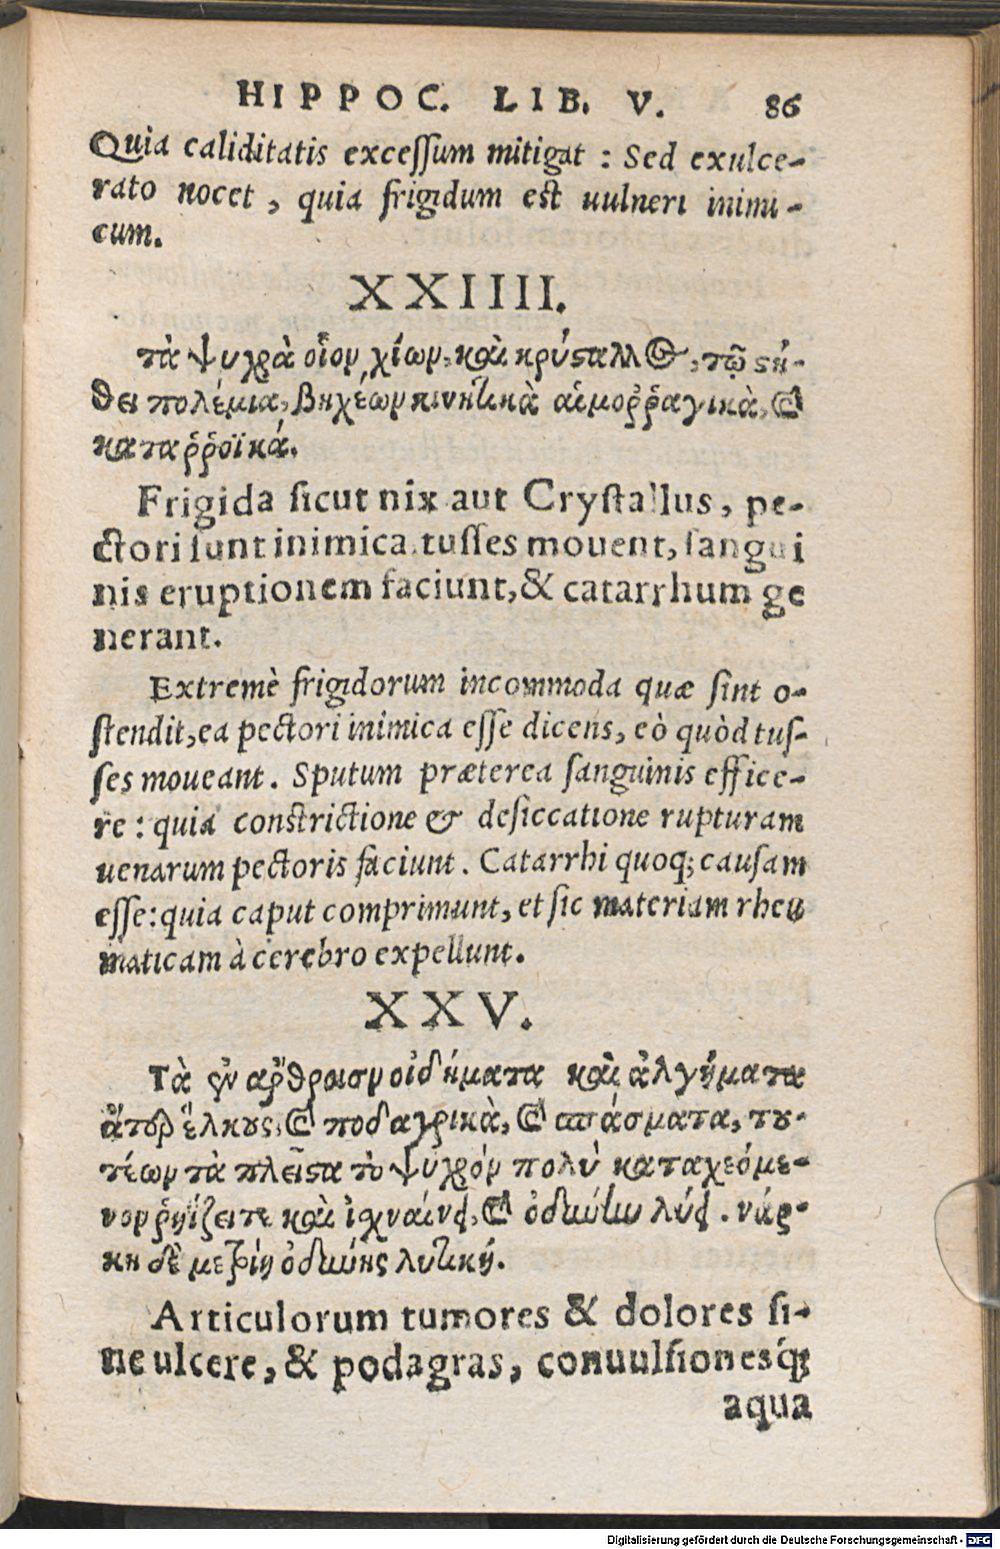 HIPPOC. LIB. V. 86
Quia caliditatis excessum mitigat : Sed exulce-
rato nocet, quia frigidum est uulneri inimi-
cum.
XXIIII.
τὰ ψυχρὰ οἷον χίων, καὶ κρύσταλλος, τῷ στή-
θει πολέμια, βηχέων κινητικὰ αἱμοῤῥαγικὰ, καὶ
καταῤῥοϊκά.
Frigida sicut nix aut Crystallus, pe-
ctori sunt inimica. tusses mouent, sangui
nis eruptionem faciunt, & catarrhum ge
nerant.
Extremè frigidorum incommoda quæ sint o-
stendit, ea pectori inimica esse dicens, eò quòd tus-
ses moueant. Sputum præterea sanguinis effice-
re : quia constrictione & desiccatione rupturam
uenarum pectoris faciunt. Catarrhi quoq; causam
esse: quia caput comprimunt, et sic materiam rheu
maticam à cerebro expellunt.
XXV.
Τὰ ἐν ἄρθροισιν οἰδήματα καὶ ἀλγήματα
ἄτερ ἕλκους, καὶ ποδαγρικὰ, καὶ σπάσματα, του-
τέων τὰ πλεῖστα τὸ ψυχρόν πολὺ καταχεόμε-
νον ῥηΐζει τε καὶ ἰχναίνει, καὶ ὀδύνην λύει. νάρ-
κη δὲ μετρίη ὀδύνης λυτική.
Articulorum tumores & dolores si-
ne ulcere, & podagras, conuulsionesq́;
aqua
Digitalisierung gefördert durch die Deutsche Forschungsgemeinschaft - DFG